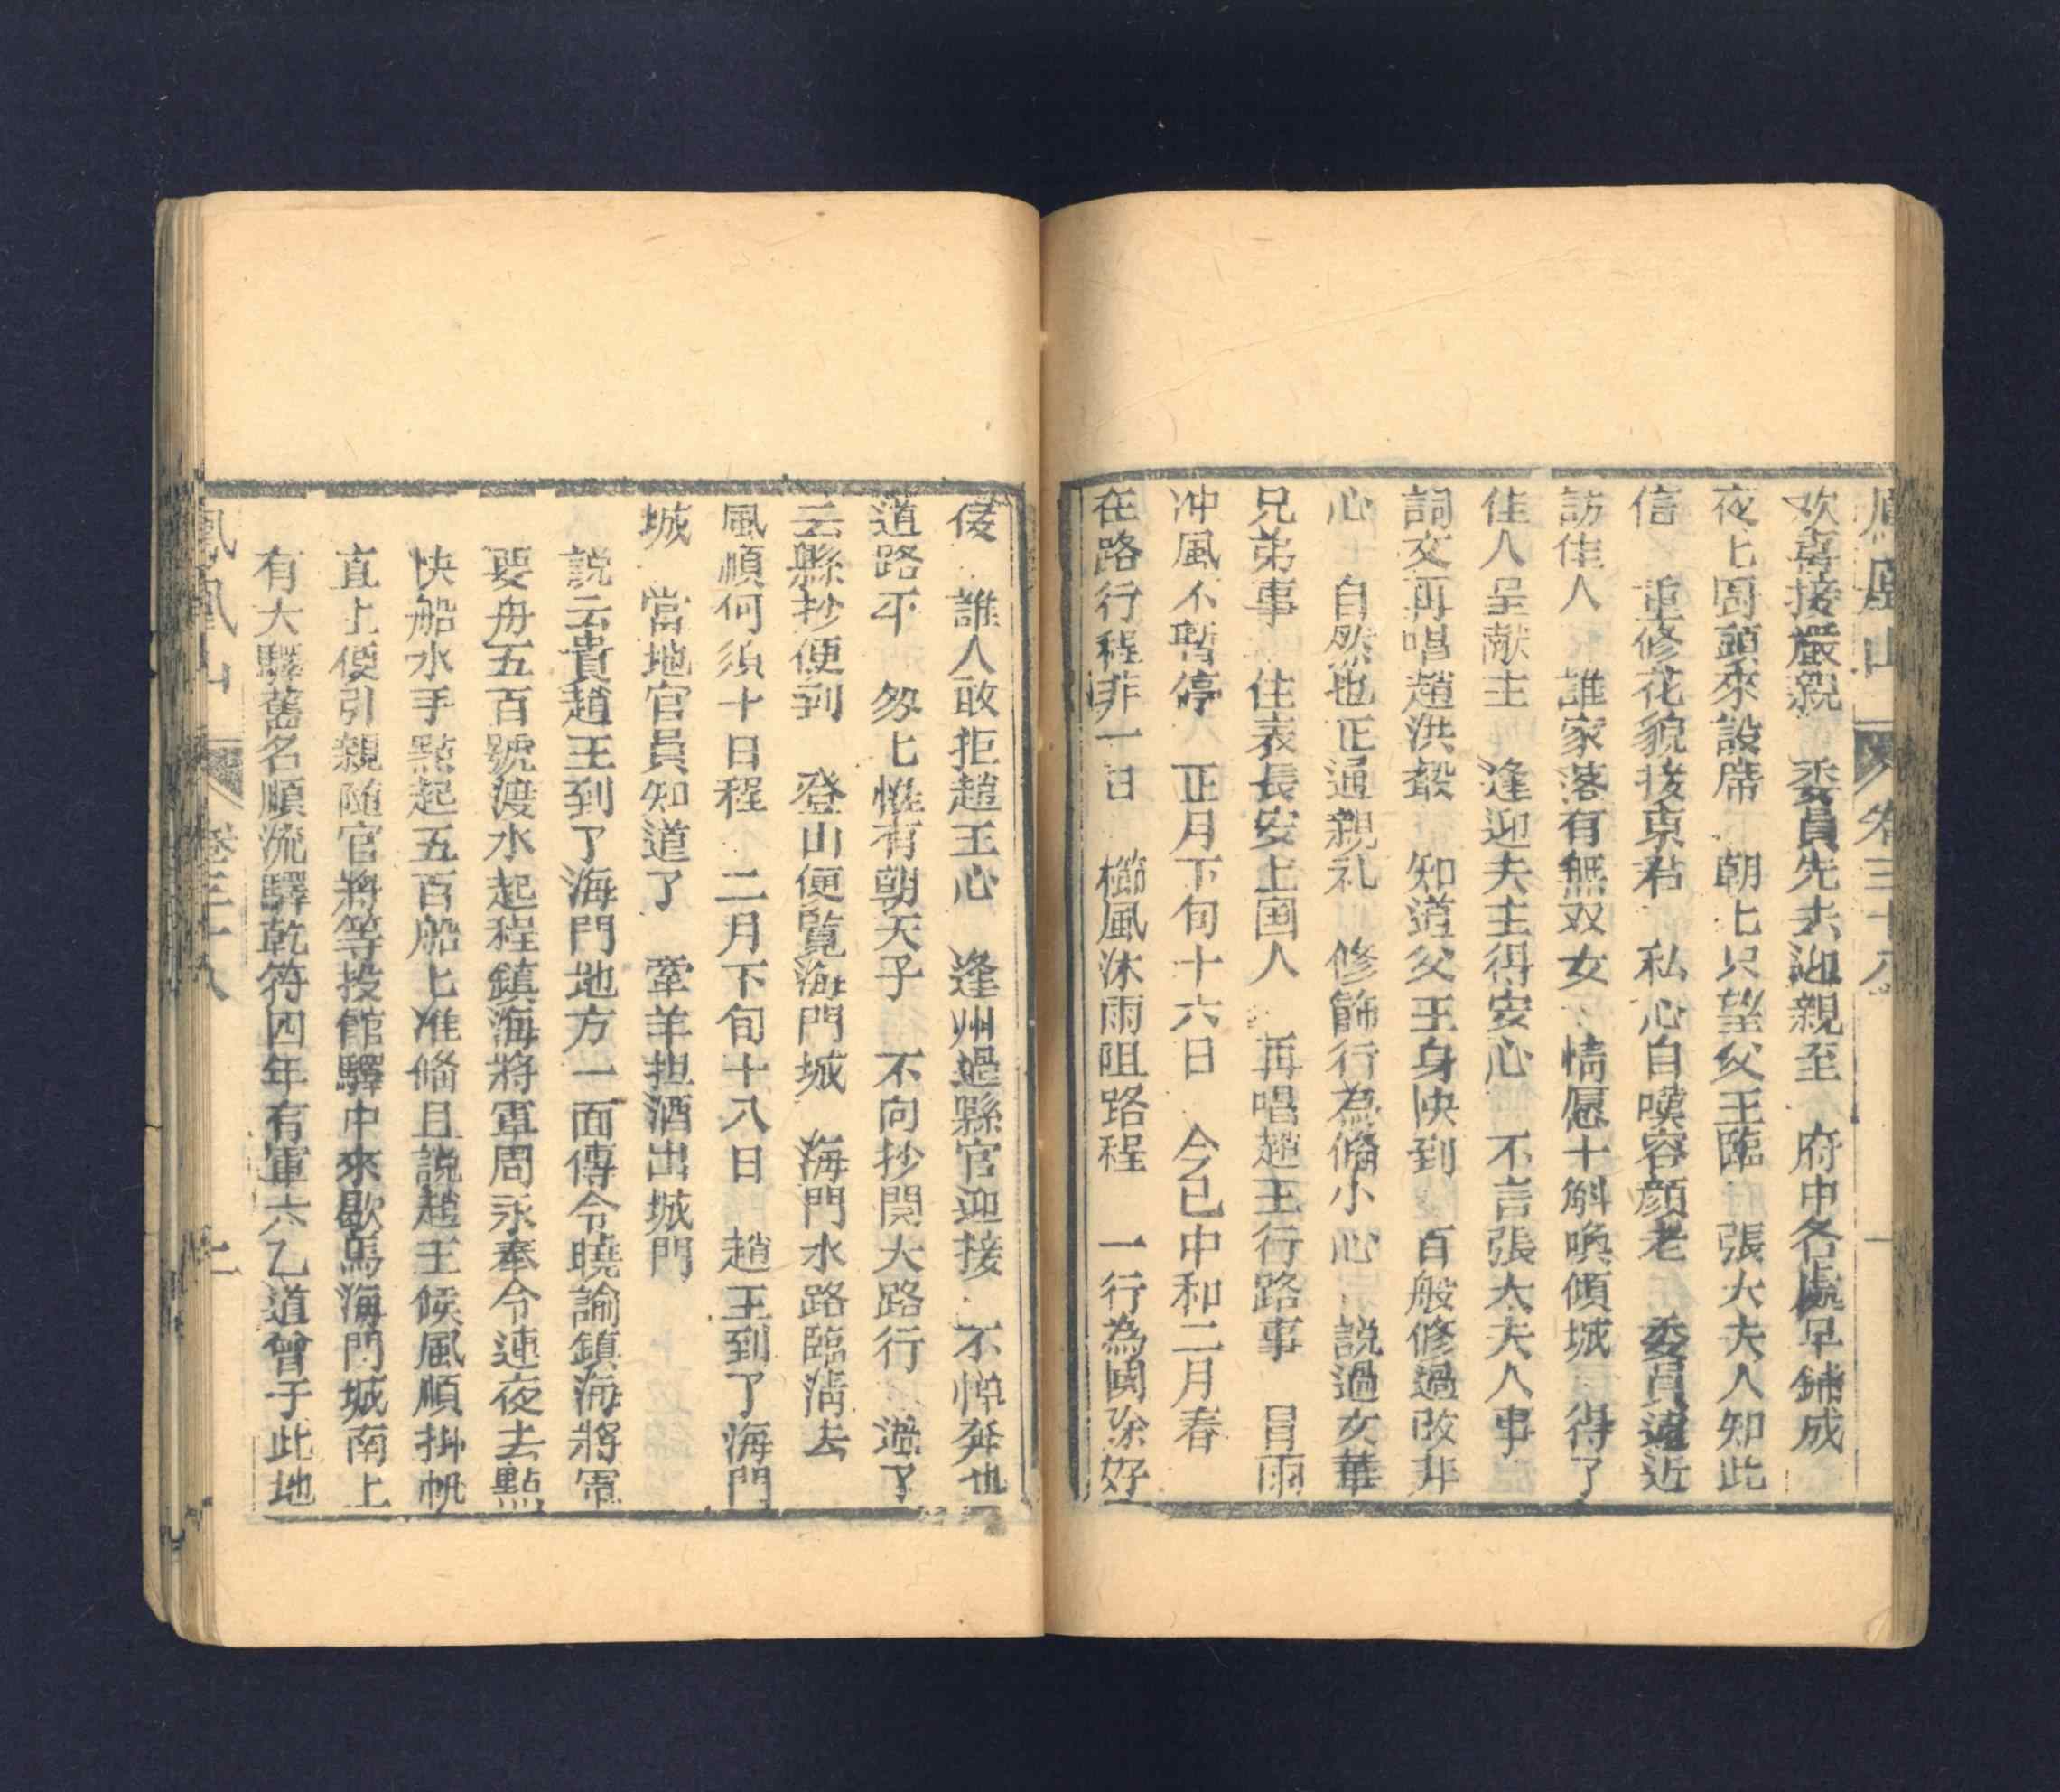 鳳凰山 卷三十八 一
欢喜接嚴親 委員先去迎親至 府中各處早鋪成
夜匕圊頭來設席 朝匕只望父王臨 張大夫人知此
信 重修花貌接東君 私心自嘆容顔老 委員遠近
訪佳人 誰家落有無双女 情愿十斛喚傾城 得了
佳人呈献主 逢迎夫主得安心 不言張大夫人事
詞文再唱趙洪殷 知道父王身快到 百般修過改非
心 自然也正通親礼 修飾行為俻小心 説過女華
兄弟事 住表長安上国人 再唱趙王行路事 冒雨
冲風不暫停 正月下旬十六日 今已中和二月春
在路行程非一日 櫛風沐雨阻路程 一行為國除好
佞 誰人敢拒趙王心 逢州過縣官迎接 不憚奔
道路平 匆匕惟有朝天子 不向抄関大路行 過了
云縣抄便到 登山便覽海門城 海門水路臨清去
風順何須十日程 二月下旬十八日 趙王到了海門
城 當地官員知道了 牽羊担酒出城門
説云貴趙王到了海門地方一面傳令曉諭鎮海將軍
要舟五百號渡水起程鎮海將軍周永奉令連夜去點
快船水手點起五百船匕准俻且說趙王候風順掛帆
直上便引親随官將等投館驛中來歇馬海門城南上
有大驛舊名順流驛乾符四年有軍六乙道曾于此地
鳳凰山 卷三十八 二